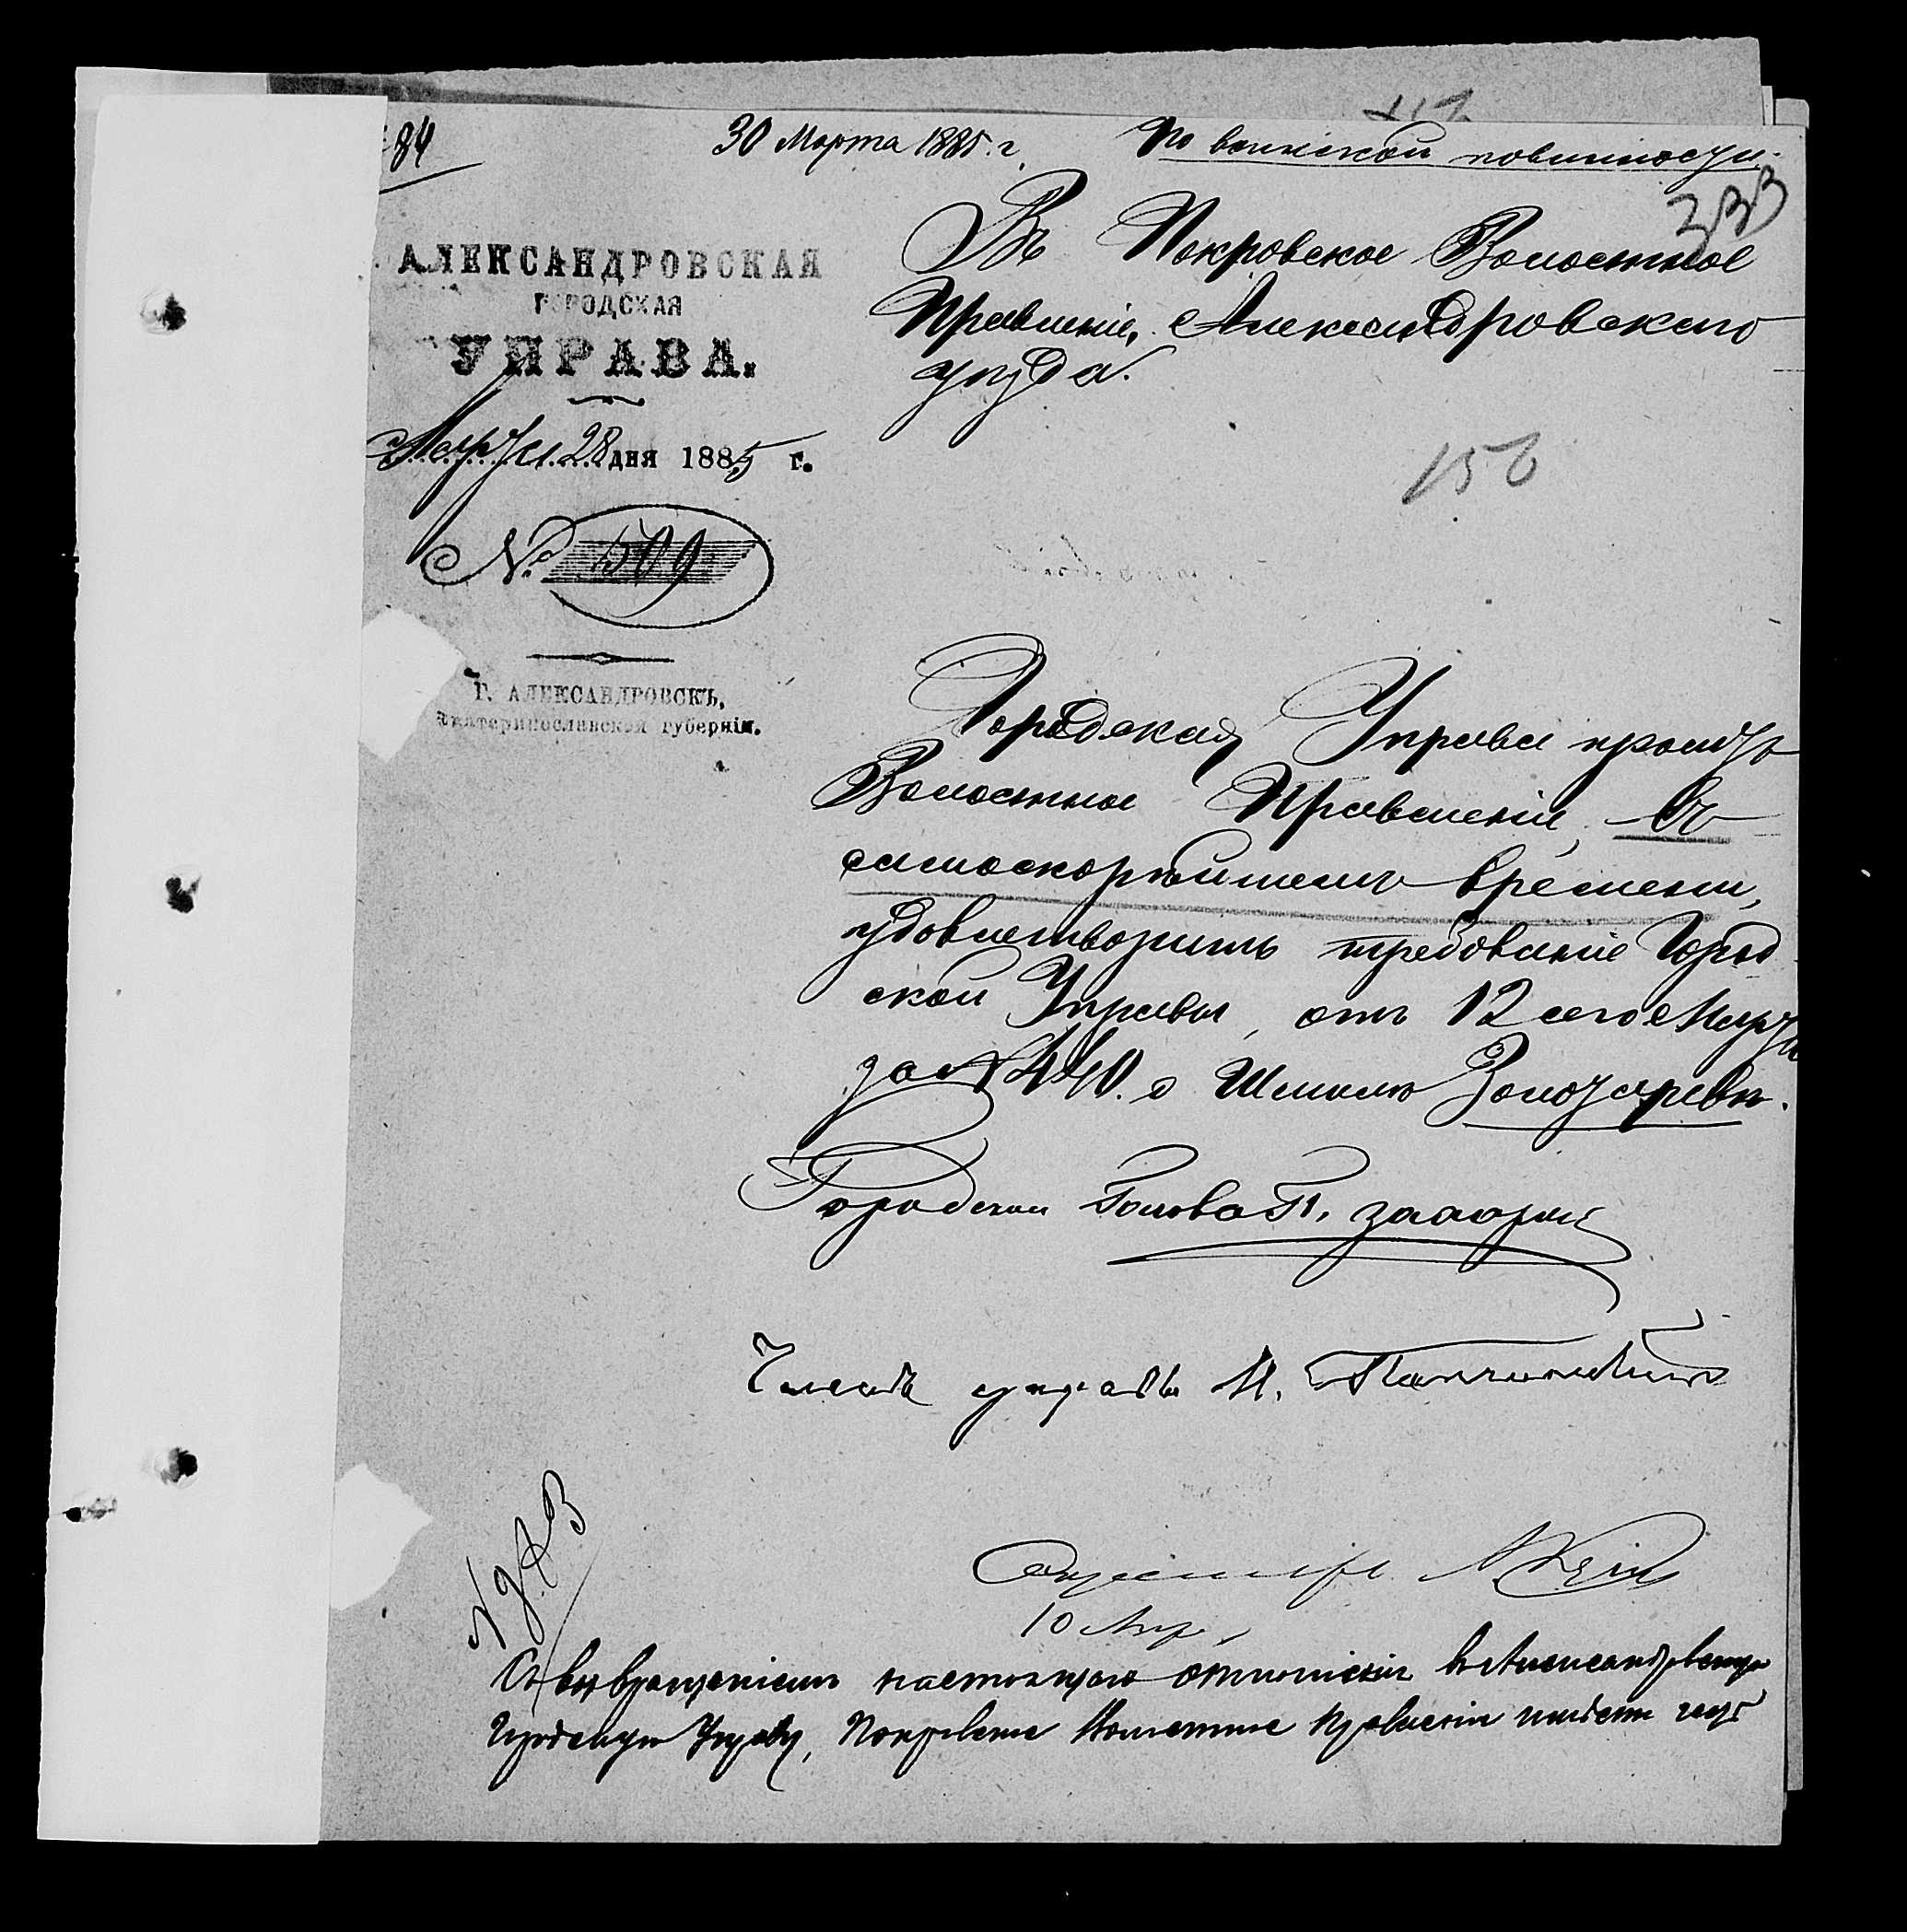 84
30 Марта 1885 г.
По воинской повинности.
233
АЛЕКСАНДРОВСКАЯ
ГОРОДСКАЯ
УПРАВА.
Марта 28 дня 1885 г.
№ 509
Г. АЛЕКСАНДРОВСКЪ,
Екатеринославской губерніи.
Въ Покровское Волостное
Правленіе, Александровскаго
уѣзда.
156
Городская Управа проситъ
Волостное Правленіе, въ
самоскорѣйшемъ времени,
удовлетворить требованіе Город
ской Управы, отъ 12 сего Марта
за № 440. о Шмилю Золотаревѣ.
Городской Голова
Членъ управы И.
Секретарь
10 Апр.
Съ возвращеніемъ настоящаго отношенія въ Александровскую
Городскую Управу, Покровское Волостное Правленіе имѣетъ честь